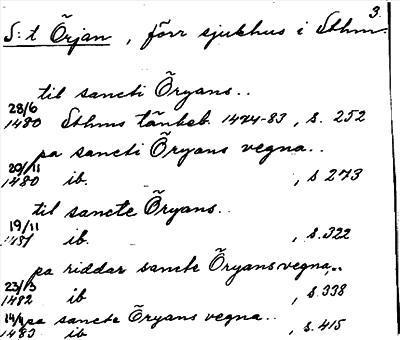 3.
S:t Örjan, förr sjukhus i Sthm.
til sancti Öryans..
28/6
1480 Sthms tänkeb. 1474-83, s. 252
pa sancti Öryans vegna..
20/11
1480 ib. , s 273
til sancte Öryans..
19/11
1481 ib. , s. 322
pa riddar sancte Öryans vegna..
23/3
1482 ib , s. 338
14/4 pa sancte Öryans vegna..
1483 ib , s. 415